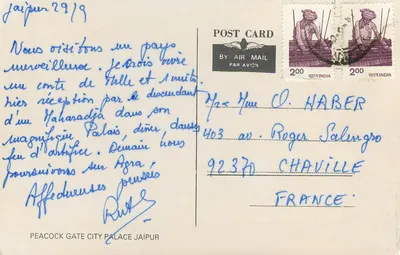 Jaipur 29/9
Nous visitons un pays
merveilleux. Je crois vivre
un conte de Mille et 1 nuits.
hier réception par le descendant
d'un Maharadja dans son
magnifique Palais, dîner, danses
feu d'artifice. Demain nous
poursuivons sur Agra.
Affectueuses pensées
Ruth
PEACOCK GATE CITY PALACE JAIPUR
POST CARD
BY AIR MAIL
PAR AVION
2.00 INDIA
2.00 INDIA
Mr Mme O. HABER
403 av. Roger Salengro
92370 CHAVILLE
FRANCE